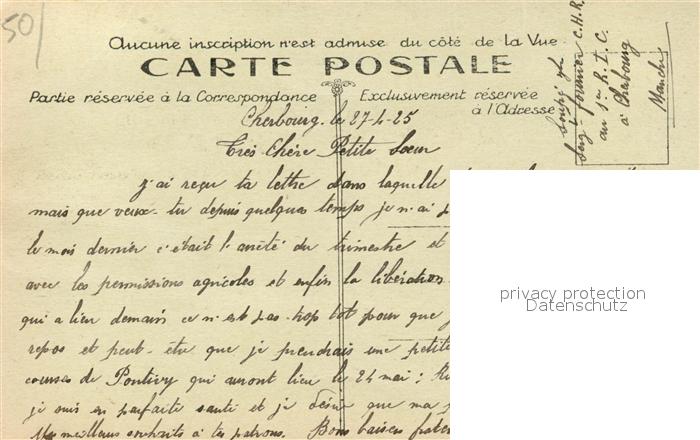 50
Aucune inscription n'est admise du côté de la Vue
CARTE POSTALE
Partie réservée à la Correspondance
Exclusivement réservée
à l'Adresse
Sergt fournier C.H.R
au 1er R.I.C.
à Cherbourg
Manche
Cherbourg. le 27-4-25
Très Chère Petite Soeur
j'ai reçu ta lettre dans laquelle
mais que veux-tu depuis quelques temps je n'ai
le mois dernier c'était l'arrêté du trimestre et
avec les permissions agricoles et enfin la libération
qui a lieu demain ce n'est pas trop tot pour que
repos et peut-être que je prendrais une petite
courses de Pontivy qui auront lieu le 24 mai;
je suis en parfaite santé et je désire que ma
Mes meilleurs souhaits à tes patrons. Bons baisers
privacy protection
Datenschutz